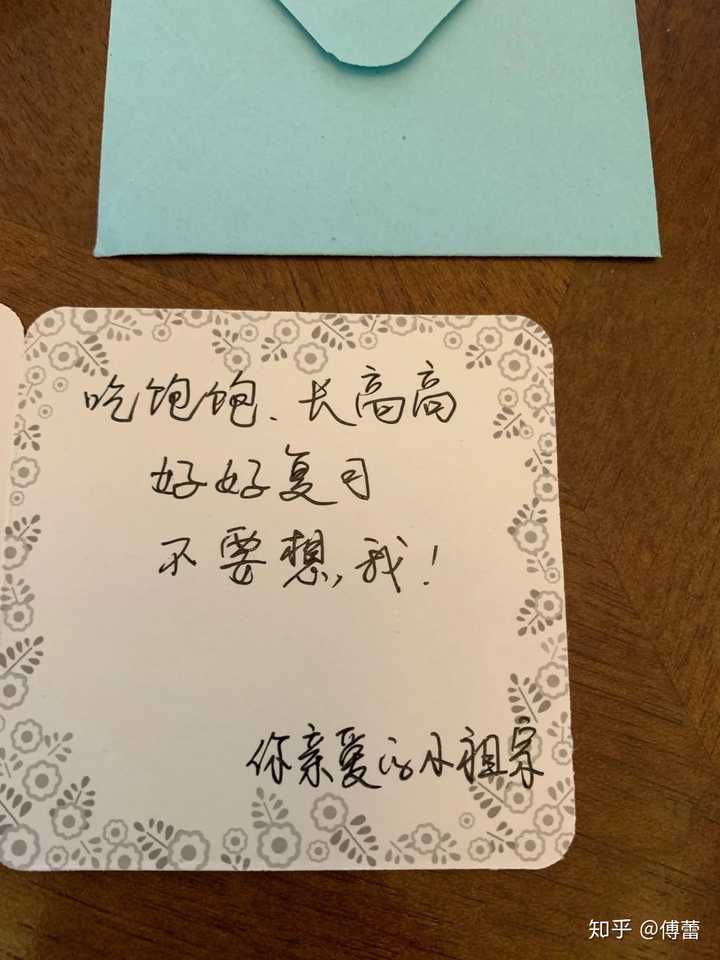 吃饱饱、长高高
好好复习
不要想我!
你亲爱的小祖宗
知乎 @傅蕾